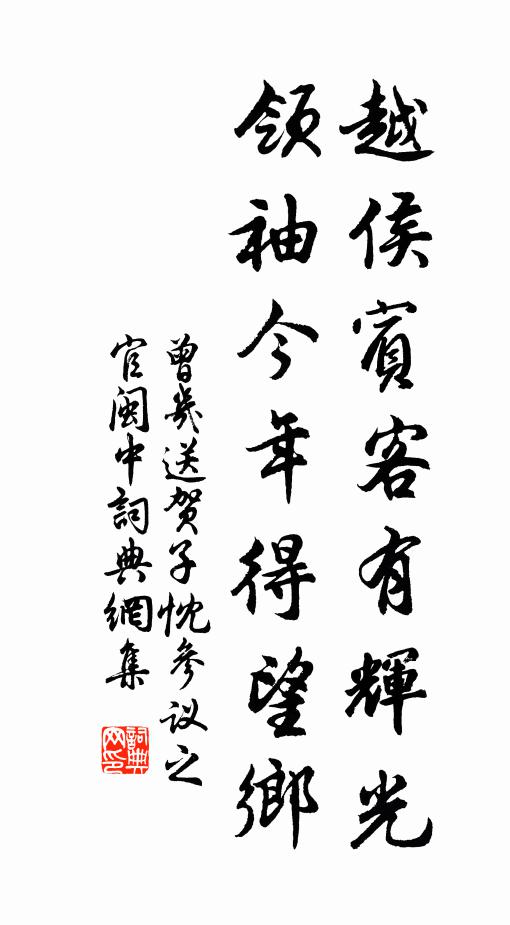 越侯賓客有輝光
領袖今年得望鄉
曾幾送贺子忱參议之
官闽中詞典網集
詞典网印